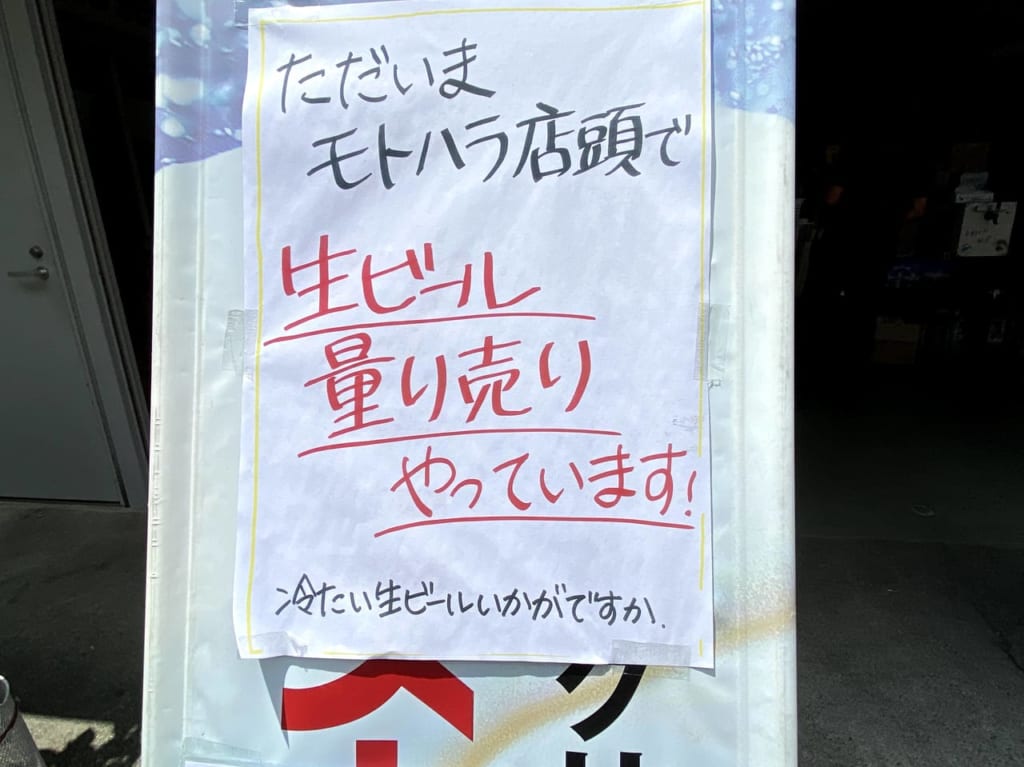 ただいま
モトハラ店頭で
生ビール
量り売り
やっています!
冷たい生ビールいかがですか.